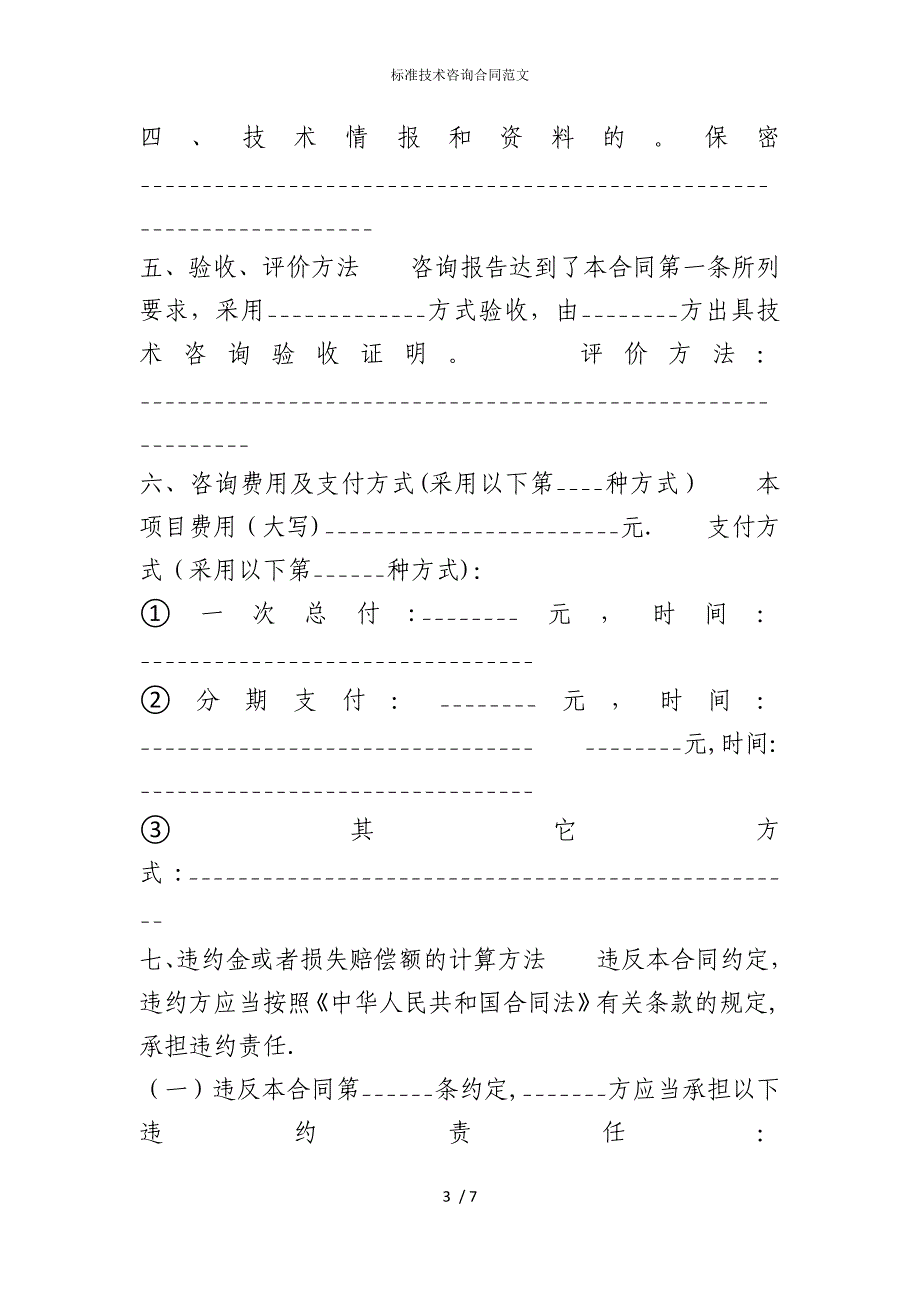 标准技术咨询合同范文
四、技术情报和资料的。保密
___________________________________________________
___________________
五、验收、评价方法 咨询报告达到了本合同第一条所列
要求，采用_____________方式验收，由________方出具技
术咨询验收证明。 评价方法：
___________________________________________________
_________
六、咨询费用及支付方式(采用以下第____种方式） 本
项目费用（大写)________________________元. 支付方
式（采用以下第______种方式)：
①一次总付:________元，时间：
________________________________
②分期支付：________元，时间：
________________________________ ________元,时间:
________________________________
③其它方
式:________________________________________________
__
七、违约金或者损失赔偿额的计算方法 违反本合同约定，
违约方应当按照《中华人民共和国合同法》有关条款的规定，
承担违约责任.
（一）违反本合同第______条约定,_______方应当承担以下
违约责任：
3 / 7